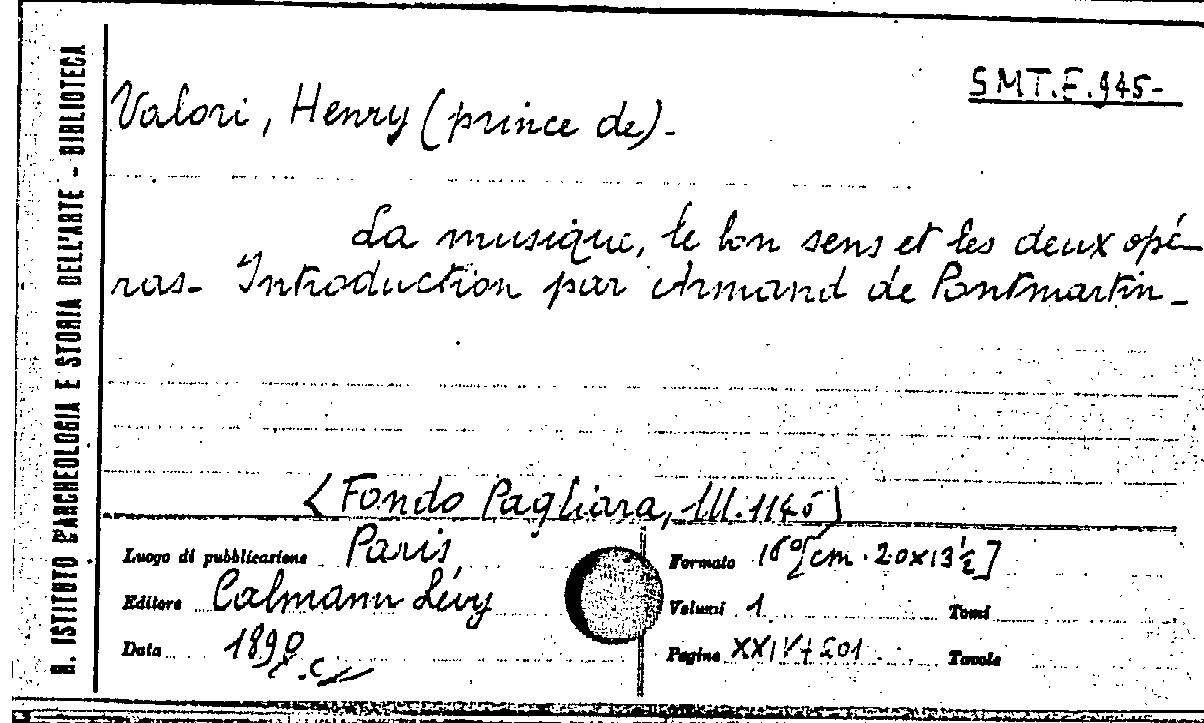 R. ISTITUTO D'ARCHEOLOGIA E STORIA DELL'ARTE - BIBLIOTECA
SMT.E.945-
Valori, Henry (prince de)-
La musique, le bon sens et les deux opé-
ras- Introduction par Armand de Pontmartin-
(Fondo Pagliara, III.1145)
Luogo di pubblicazione Paris,
Editore Calmann Lévy
Data 1890
Formato 16º [cm. 20x13½]
Volumi 1 Tomi
Pagine XXIV+ Tavole